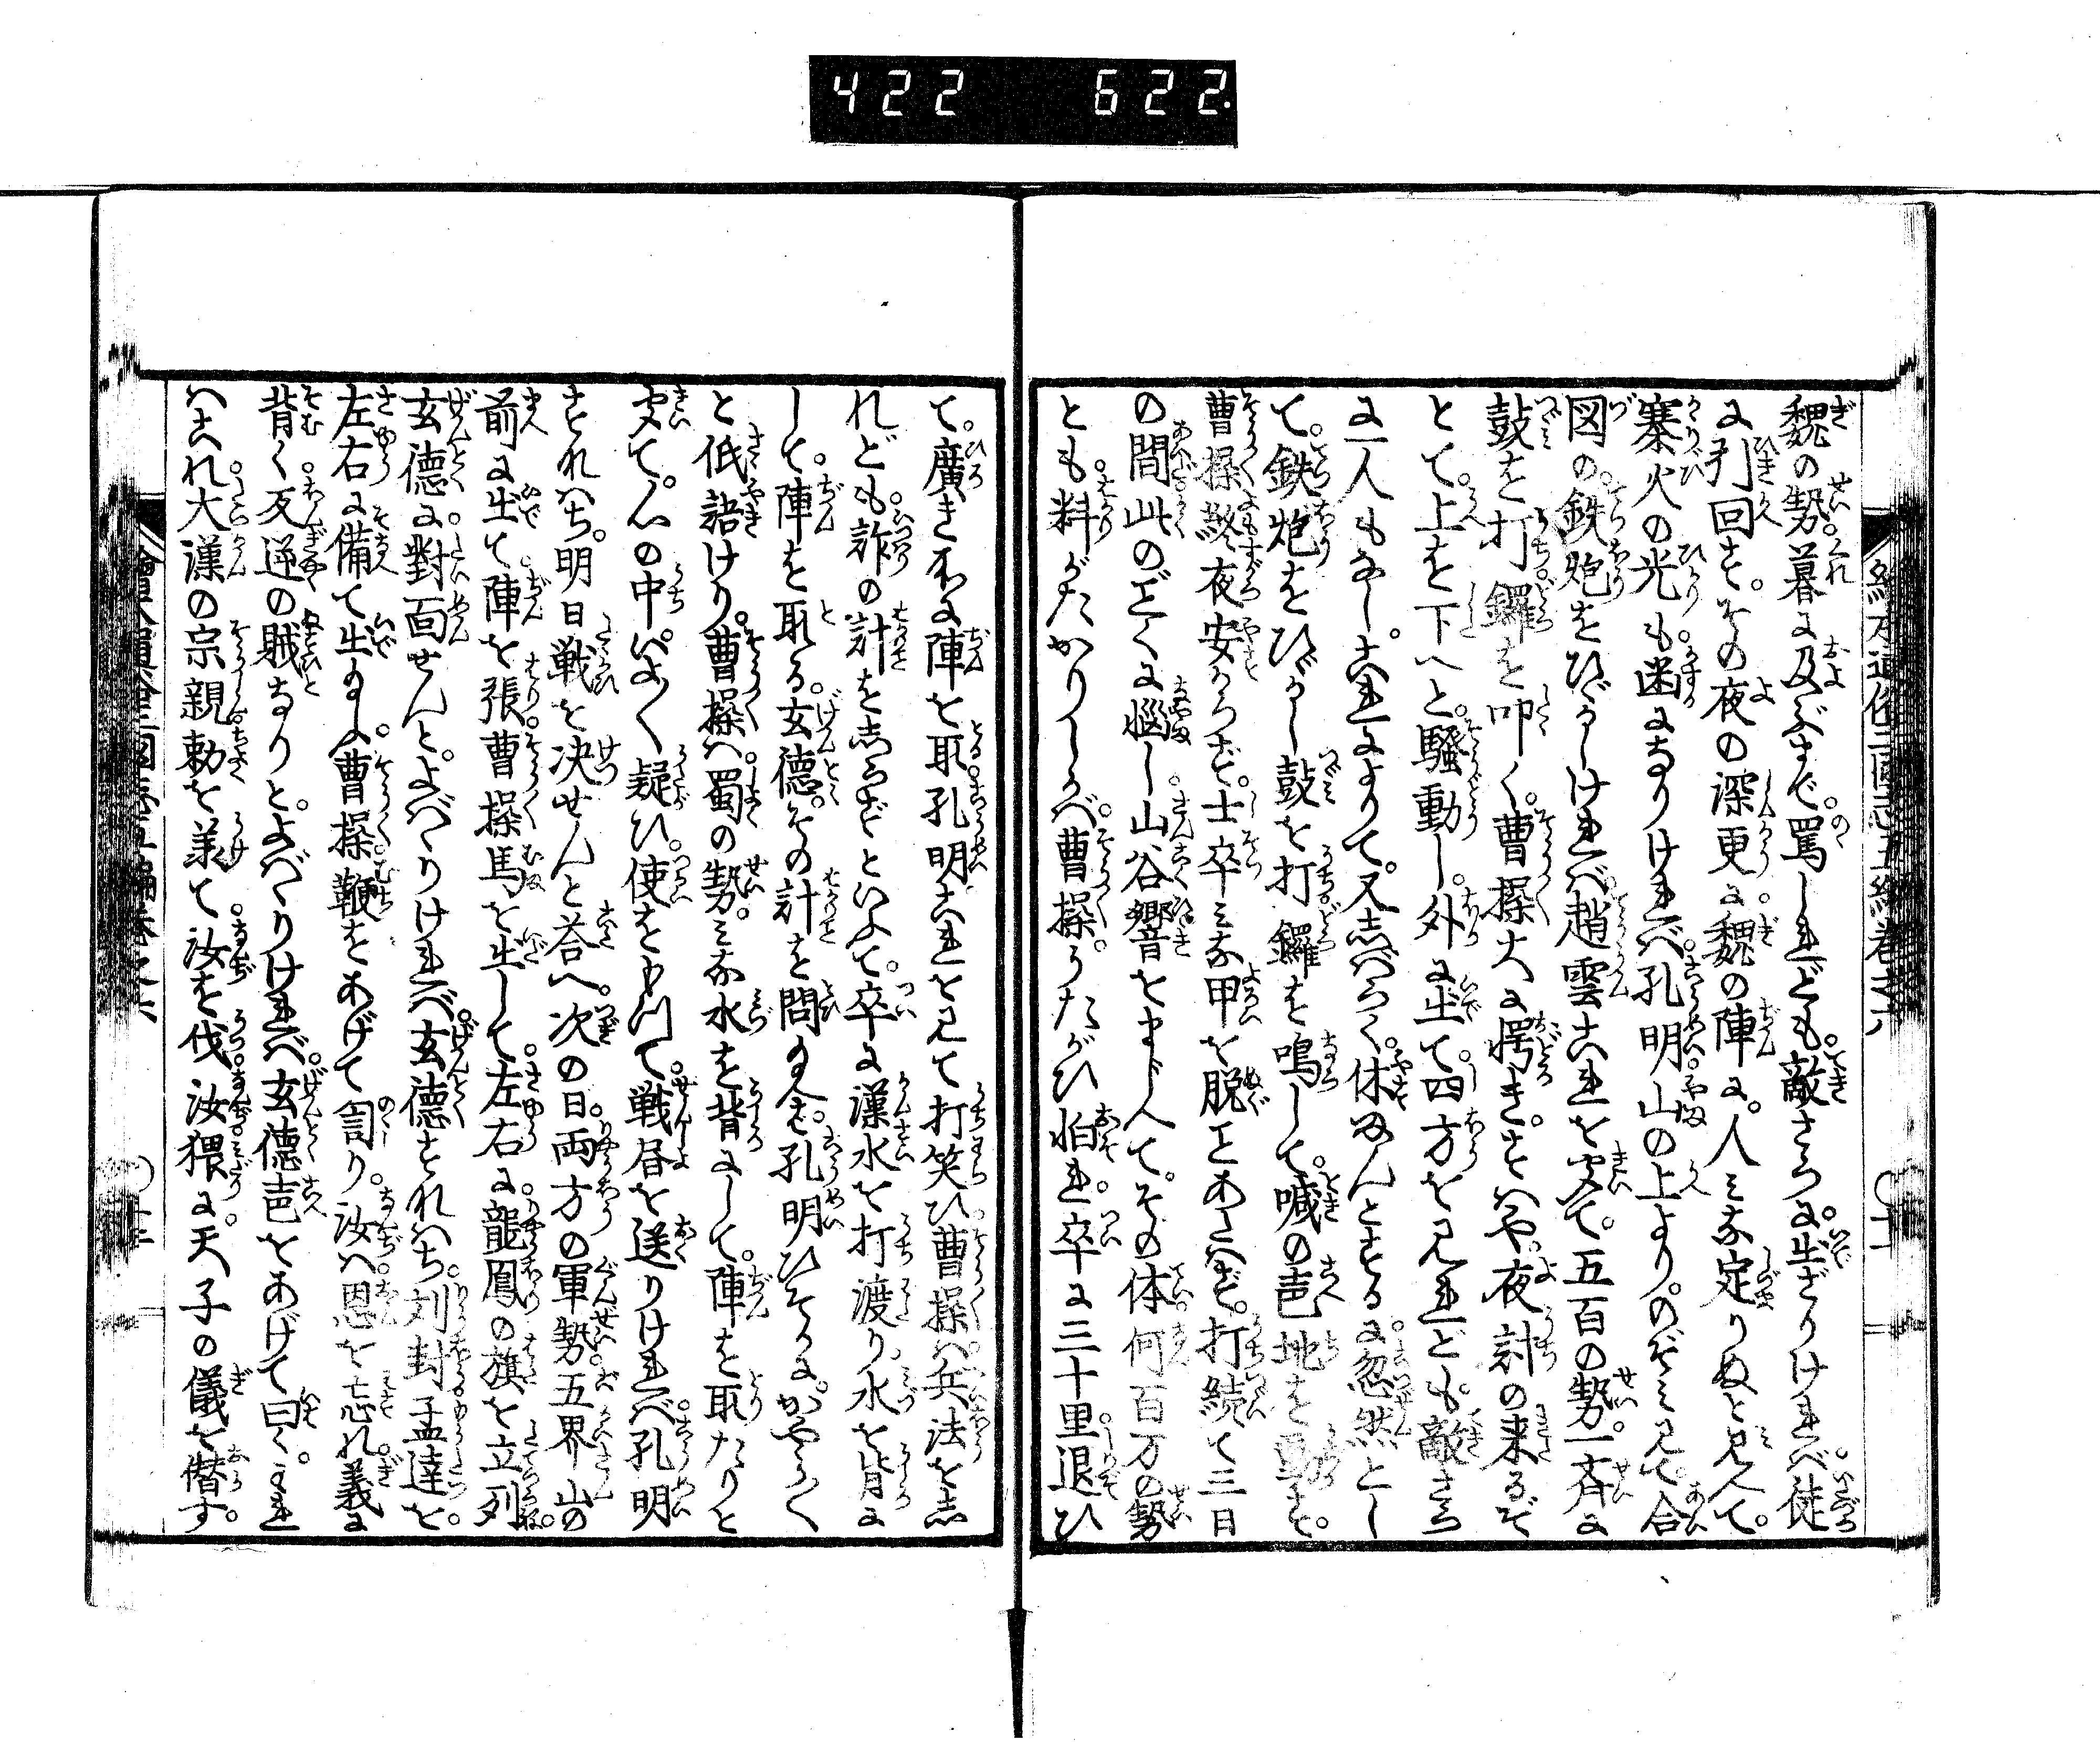 422 622
魏の勢暮に及ぶまで罵しれども敵さらに出ざりければ徒
に引回す。その夜の深更に魏の陣に人みな定りぬと見へて。
寨火の光も幽になりければ孔明山の上よりのぞみ見て合
図の鉄炮をひゞかしければ趙雲これを聞て五百の勢一斉に
鼓を打鑼を叩く。曹操大に愕き。すはや夜討の来るぞ
とて上を下へと騒動し外に出て四方を見れども敵さら
に一人もなし。これによりて又しばらく休まんとするに忽然とし
て。鉄炮をひゞかし鼓を打鑼を鳴して喊の声地を動す。
曹操終夜安からず士卒みな甲を脱ことあたはず打続て三日
の間此のごとくに悩し山谷響をまじへて。その体何百万の勢
とも料がたかりしかば曹操うたがひ怕れ卒に三十里退ひ
て。廣き所に陣を取孔明これを見て打笑ひ曹操は兵法を志
れども詐の計を志らずといふて。卒に漢水を打渡り水を背に
して陣を取る玄徳その計を問給へば孔明ひそかにかやうく
と低語けり。曹操は蜀の勢みな水を背にして。陣を取たりと
聞て。心の中いよ〱疑ひ使を以て。戦書を送りければ孔明
すなはち明日戦を決せんと答へ。次の日両方の軍勢五界山の
前に出て陣を張曹操馬を出して左右に龍鳳の旗を立列
玄徳に對面せんとよばゝりければ玄徳すなはち刘封孟達を
左右に備て出給ふ曹操鞭をあげて罵り汝は恩を忘れ義に
背く反逆の賊なりとよばゝりければ玄徳声をあげて曰くわれ
はこれ大漢の宗親勅を美て汝を伐汝猥に天子の儀を僭す。